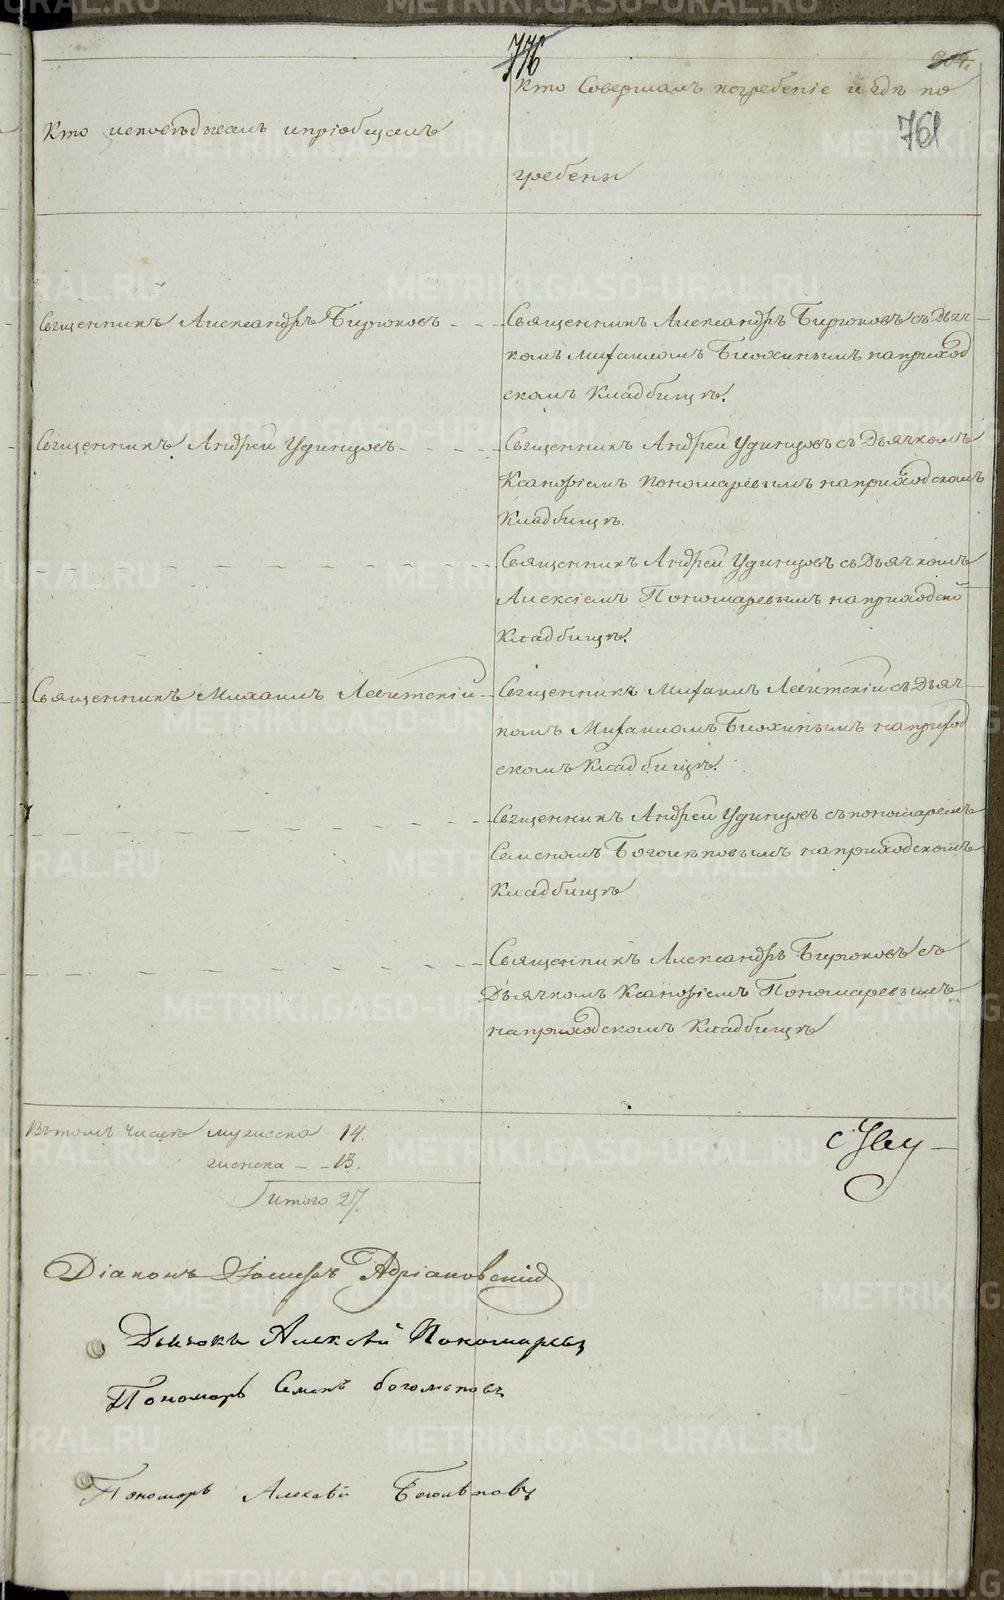 776
761
Кто исповѣджалъ и пріобщалъ
Кто Совершалъ погребеніе и гдѣ по
гребены
Священникъ Александръ Бирюковъ
Священникъ Александръ Бирюковъ съ Дьяч
комъ Михаиломъ Блохинымъ на приход
скомъ Кладбищѣ.
Священникъ Андрей Удинцовъ
Священникъ Андрей Удинцовъ съ Дьячкомъ
Ксанофіемъ Пономаревымъ на приходскомъ
Кладбищѣ.
Священникъ Андрей Удинцовъ съ Дьячкомъ
Алексіемъ Пономаревымъ на приходско
Кладбищѣ.
Священникъ Михаилъ Левитскій
Священникъ Михаилъ Левитскій съ Дьяч
комъ Михаиломъ Блохинымъ на приход
скомъ Кладбищѣ.
Священникъ Андрей Удинцовъ съ пономаремъ
Семеномъ Боголѣповымъ на приходскомъ
Кладбищѣ
Священникъ Александръ Бирюковъ съ
Дьячкомъ Ксанофіемъ Пономаревымъ
на приходскомъ Кладбищѣ
Въ томъ числѣ мужеска 14.
женска 13.
Итого 27.
Діаконъ Іосифъ Адріановскій
Дьячокъ Алексѣй Пономаревъ
Пономарь Семенъ Боголѣповъ
Пономарь Алексѣй Боголѣповъ
METRIKI.GASO-URAL.RU